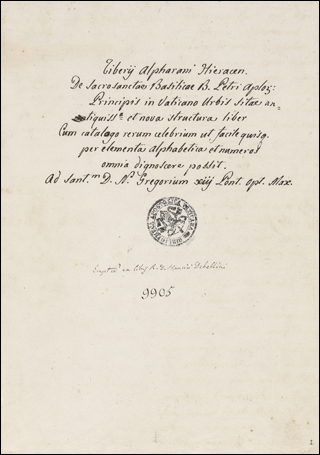 Tiberij Alpharani Hieracen.
De Sacrosanctae Basilicae B. Petri Aplor;
Principis in Vaticano Urbis sitae an=
tiquiss.ª et nova structura liber
Cum catalogo rerum celebrium ut facile quisq.
per elementa Alphabetica et numeros
omnia dignoscere possit.
Ad Sant.m D. N. Gregorium xiij Pont. Opt. Max.
BIBLIOTHECA APOSTOLICA VATICANA
9905
1